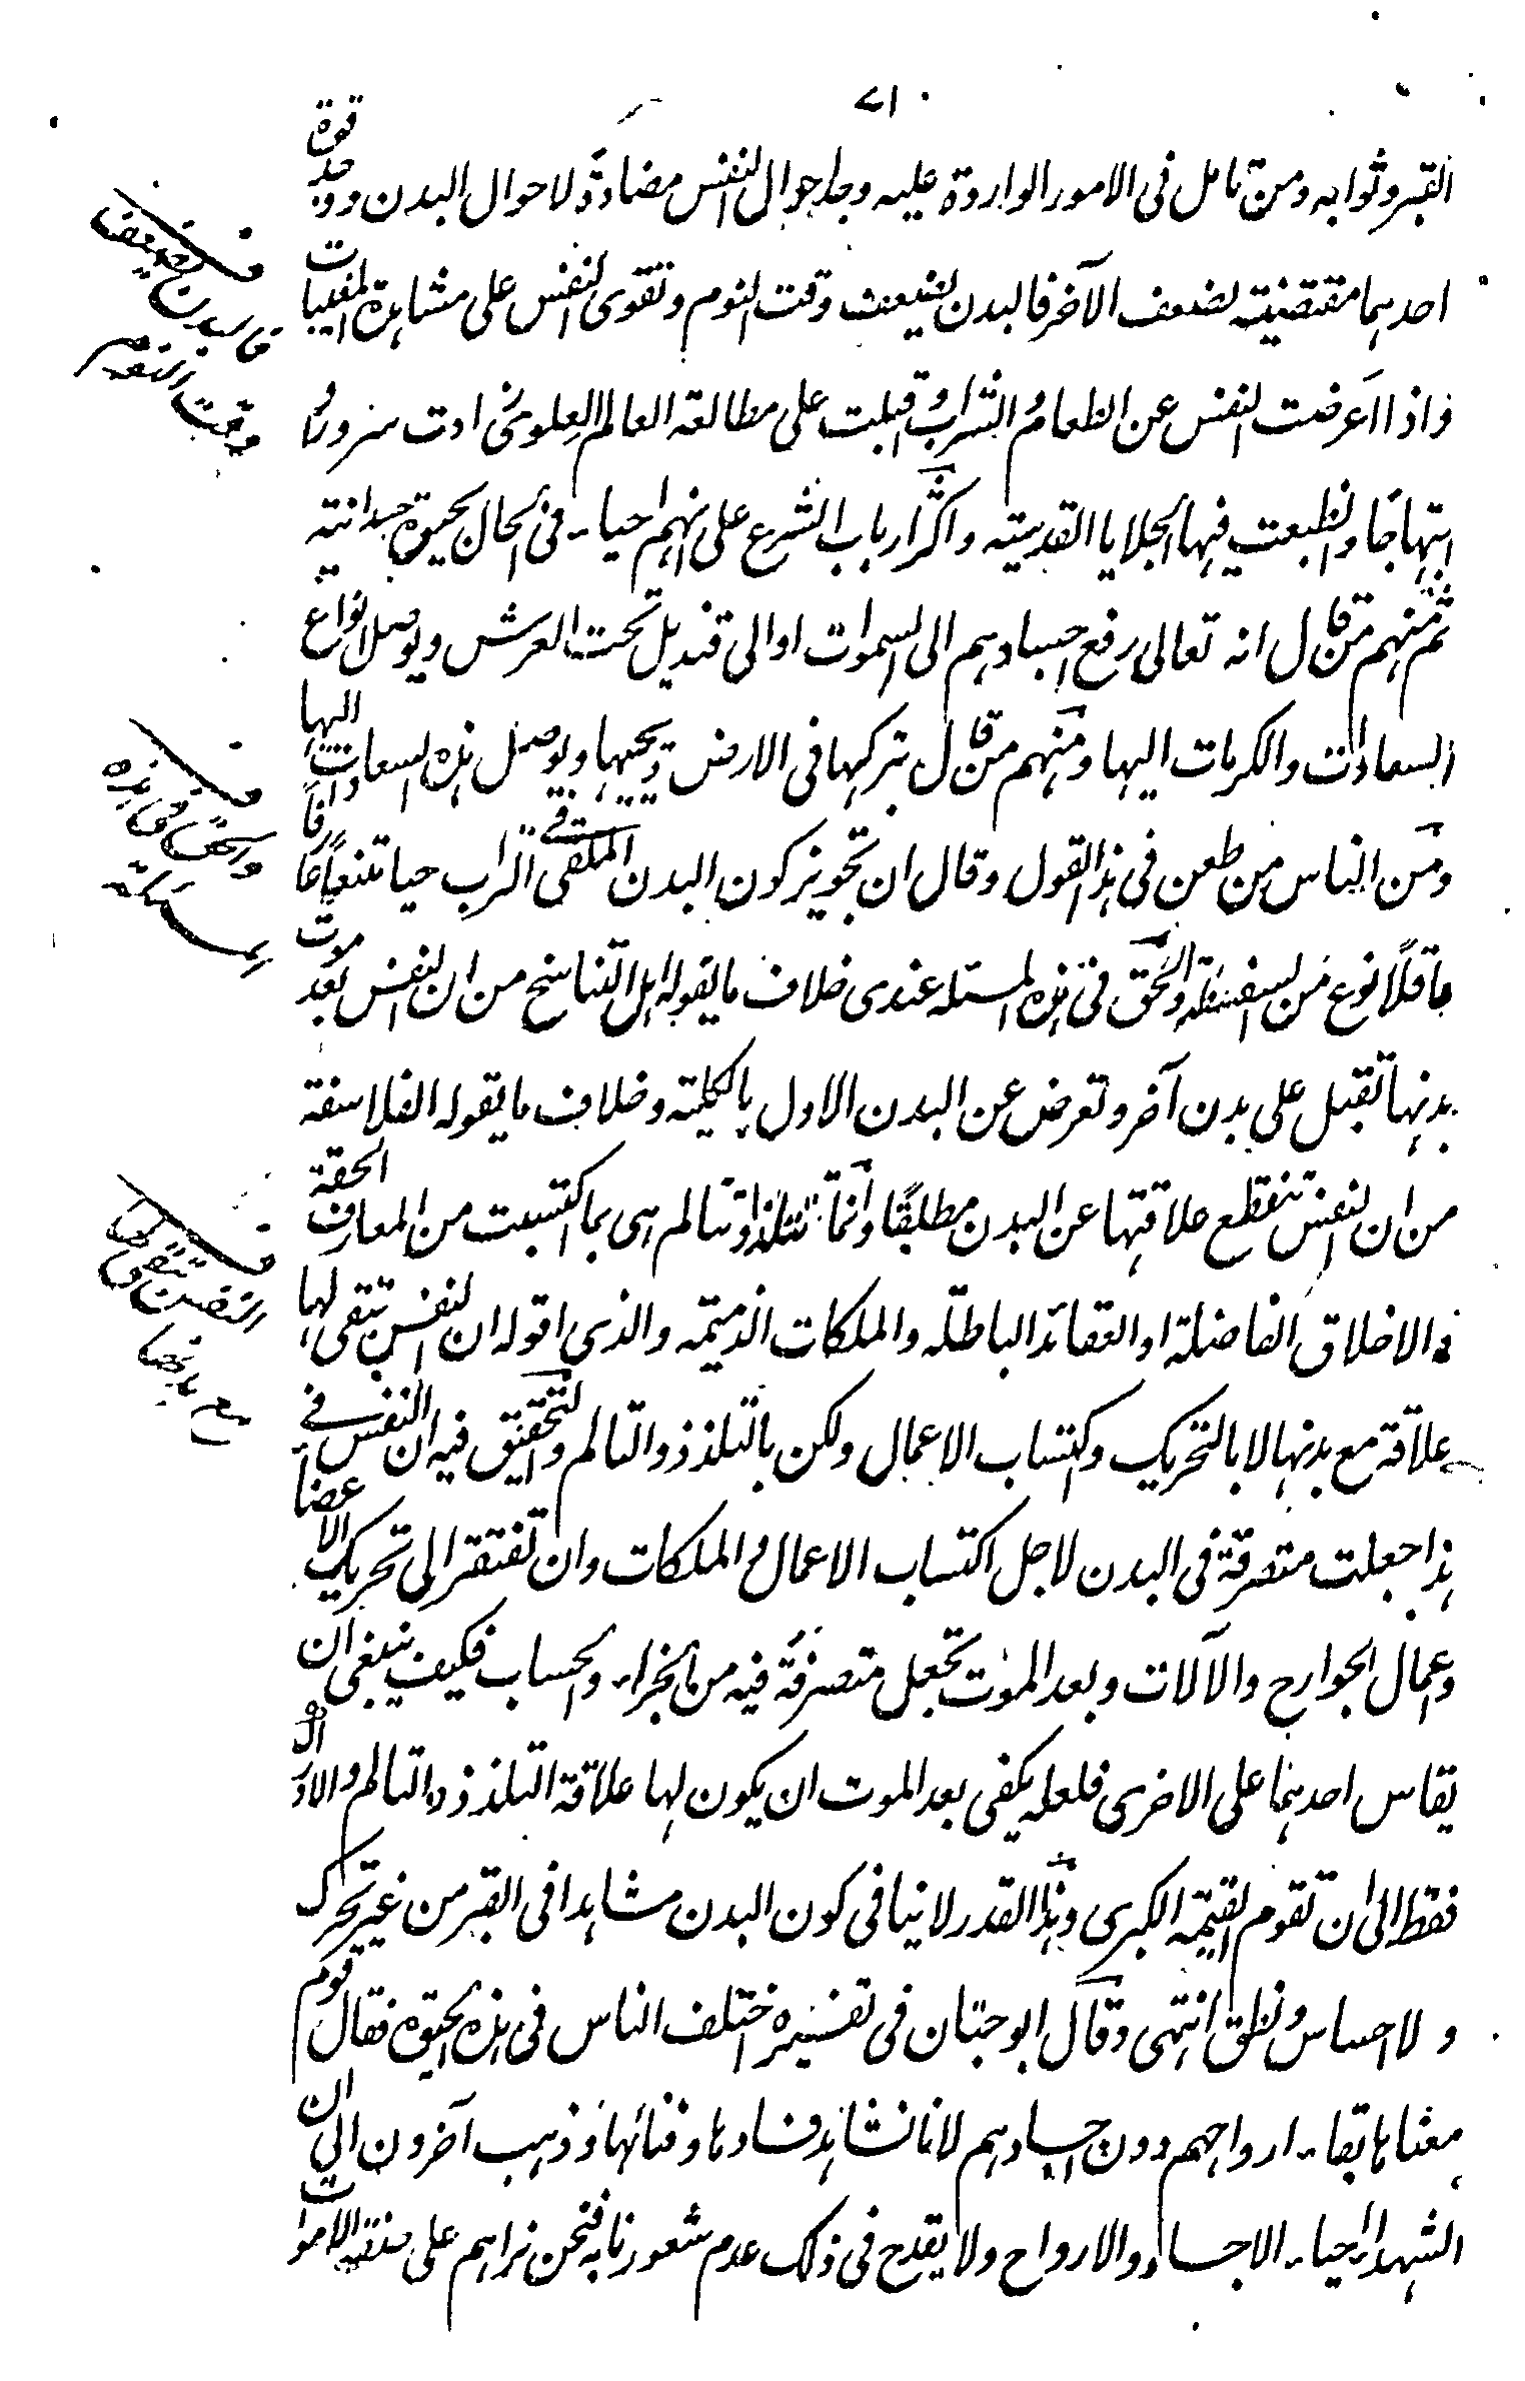 ٧١
القبر وثوابه ومن تامل فى الامور الواردة عليه وجد احوال النفس مضادة لاحوال البدن ووجد قوة
احدهما مقتضية لضعف الآخر فالبدن يضعف وقت النوم وتقوى النفس على مشاهدة المغيبات
واذا اعرضت النفس عن الطعام والشراب واقبلت على مطالعة العالم العلوى زادت سرورا و
ابتهاجا وانطبعت فيها الجلايا القدسية واكثر ارباب الشرع على انهم احياء فى الحال بحيوة جسدانية
ثم منهم من قال انه تعالى رفع اجسادهم الى السموات او الى قنديل تحت العرش ويوصل انواع
السعادات والكرمات اليها ومنهم من قال بتركها فى الارض ويحييها ويوصل هذه السعادات اليها
ومن الناس من طعن فى هذا القول وقال ان تجويز كون البدن الملقى فى التراب حيا متنعما عارفا
عاقلا نوع من السفسطة والحق فى هذه المسئلة عندى خلاف ما يقوله اهل التناسخ من ان النفس بعد موت
بدنها تقبل على بدن آخر وتعرض عن البدن الاول بالكلية وخلاف ما يقوله الفلاسفة
من ان النفس تنقطع علاقتها عن البدن مطلقا وانما تتلذذ او تتالم هى بما اكتسبت من المعارف الحقة
والاخلاق الفاضلة او العقائد الباطلة والملكات الذميمة والذى اقوله ان النفس تبقى لها
علاقة مع بدنها لا بالتحريك واكتساب الاعمال ولكن بالتلذذ والتالم والتحقيق فيه ان النفس فى
هذا جعلت متصرفة فى البدن لاجل اكتساب الاعمال والملكات وان تفتقر الى تحريك الاعضاء
واعمال الجوارح والآلات وبعد الموت تجعل متصرفة فيه من الجزاء والحساب فكيف ينبغى ان
يقاس احدهما على الاخرى فلعله يكفى بعد الموت ان يكون لها علاقة التلذذ والتالم والادراك
فقط الى ان تقوم القيمة الكبرى وهذا القدر لا ينافى كون البدن مشاهدا فى القبر من غير تحرك
ولا احساس ونطق انتهى وقال ابو حيان فى تفسيره اختلف الناس فى هذه الحيوة فقال قوم
معناها بقاء ارواحهم دون اجسادهم لانا نشاهد فسادها وفنائها وذهب آخرون الى ان
الشهداء احياء الاجساد والارواح ولا يقدح فى ذلك عدم شعورنا به فنحن نراهم على صفة الاموات
فالبدن يضعف
وقت النوم
والحق فى هذه
المسئلة
النفس تبقى لها